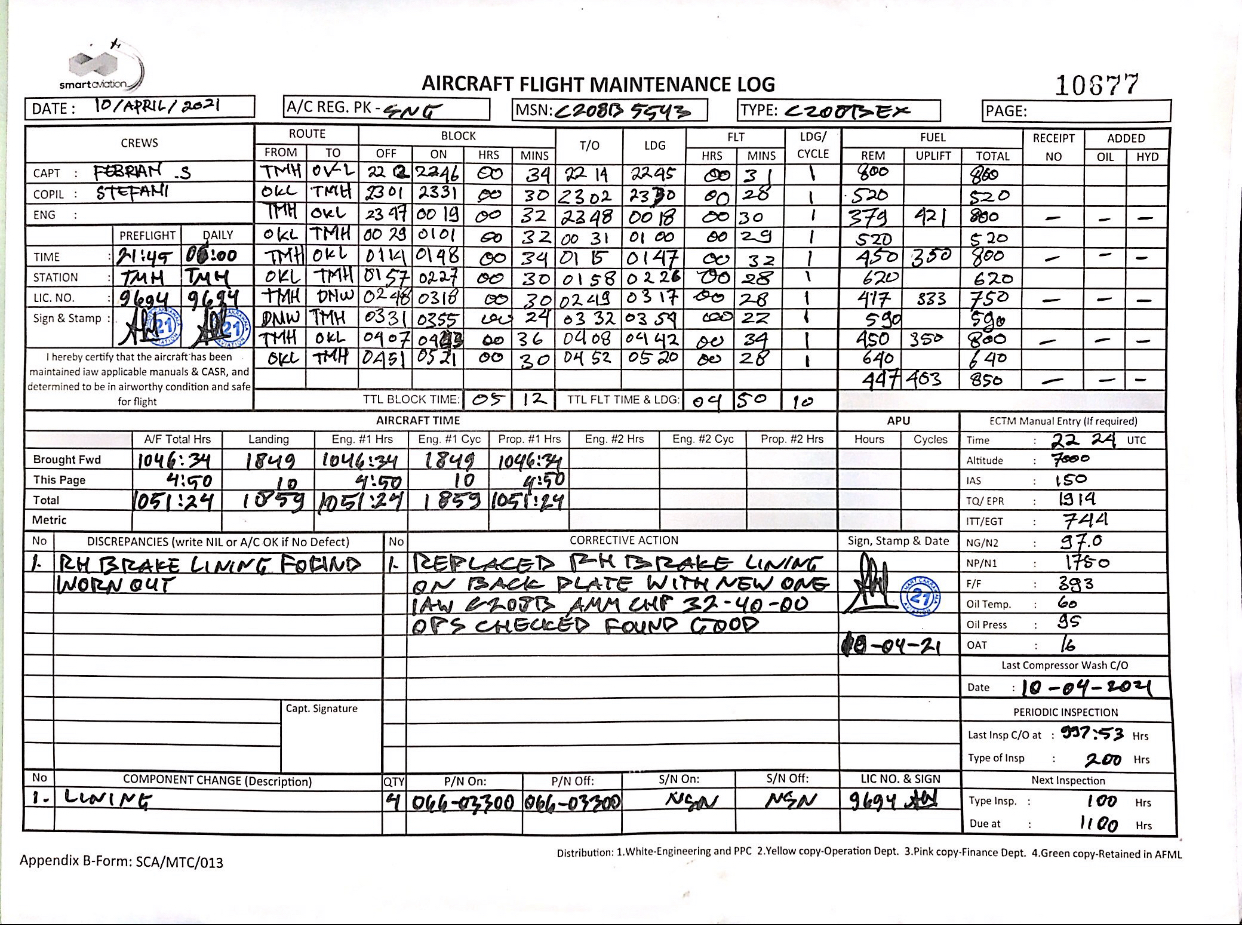 smartaviation
AIRCRAFT FLIGHT MAINTENANCE LOG
10677
DATE : 10/APRIL/2021 A/C REG. PK - SNG MSN: C208B 5543 TYPE: C208BEX PAGE:
CREWS ROUTE BLOCK T/O LDG FLT LDG/ CYCLE FUEL RECEIPT NO ADDED
FROM TO OFF ON HRS MINS HRS MINS REM UPLIFT TOTAL OIL HYD
CAPT : FEBRIAN .S TMH OKL 22 12 2246 00 34 22 14 2245 00 31 1 800 800
COPIL : STEFANI OKL TMH 2301 2331 00 30 2302 2330 00 28 1 520 520
ENG : TMH OKL 2347 0019 00 32 2348 0018 00 30 1 379 421 800 — — —
OKL TMH 0029 0101 00 32 00 31 01 00 00 29 1 520 520
PREFLIGHT DAILY
TIME : 21:45 00:00 TMH OKL 0114 0148 00 34 01 15 0147 00 32 1 450 350 800 — — —
STATION : TMH TMH OKL TMH 0157 0227 00 30 0158 0226 00 28 1 620 620
LIC. NO. : 9694 9694 TMH DNW 0248 0318 00 30 0249 0317 00 28 1 417 333 750 — — —
Sign & Stamp : 21 21 DNW TMH 0331 0355 00 24 0332 0354 00 22 1 590 590
TMH OKL 0407 0443 00 36 0408 0442 00 34 1 450 350 800 — — —
OKL TMH 0451 0521 00 30 0452 0520 00 28 1 640 640
447 403 850 — — —
I hereby certify that the aircraft has been
maintained iaw applicable manuals & CASR, and
determined to be in airworthy condition and safe
for flight
TTL BLOCK TIME: 05 12 TTL FLT TIME & LDG: 04 50 10
AIRCRAFT TIME APU ECTM Manual Entry (If required)
A/F Total Hrs Landing Eng. #1 Hrs Eng. #1 Cyc Prop. #1 Hrs Eng. #2 Hrs Eng. #2 Cyc Prop. #2 Hrs Hours Cycles Time : 22 24 UTC
Brought Fwd 1046:34 1849 1046:34 1849 1046:34 Altitude : 7000
This Page 4:50 10 4:50 10 4:50 IAS : 150
Total 1051:24 1859 1051:24 1859 1051:24 TQ/ EPR : 1914
Metric ITT/EGT : 744
No DISCREPANCIES (write NIL or A/C OK if No Defect) No CORRECTIVE ACTION Sign, Stamp & Date NG/N2 : 97.0
1. RH BRAKE LINING FOUND 1. REPLACED RH BRAKE LINING NP/N1 : 1750
WORN OUT ON BACK PLATE WITH NEW ONE 21 F/F : 393
IAW C208B AMM CHP 32-40-00 Oil Temp. : 60
OPS CHECKED FOUND GOOD Oil Press : 95
10-04-21 OAT : 16
Last Compressor Wash C/O
Date : 10-04-2021
Capt. Signature PERIODIC INSPECTION
Last Insp C/O at : 997:53 Hrs
Type of Insp : 200 Hrs
No COMPONENT CHANGE (Description) QTY P/N On: P/N Off: S/N On: S/N Off: LIC NO. & SIGN Next Inspection
1. LINING 4 066-03300 066-03300 NSN NSN 9694 Type Insp. : 100 Hrs
Due at : 1100 Hrs
Appendix B-Form: SCA/MTC/013
Distribution: 1.White-Engineering and PPC 2.Yellow copy-Operation Dept. 3.Pink copy-Finance Dept. 4.Green copy-Retained in AFML